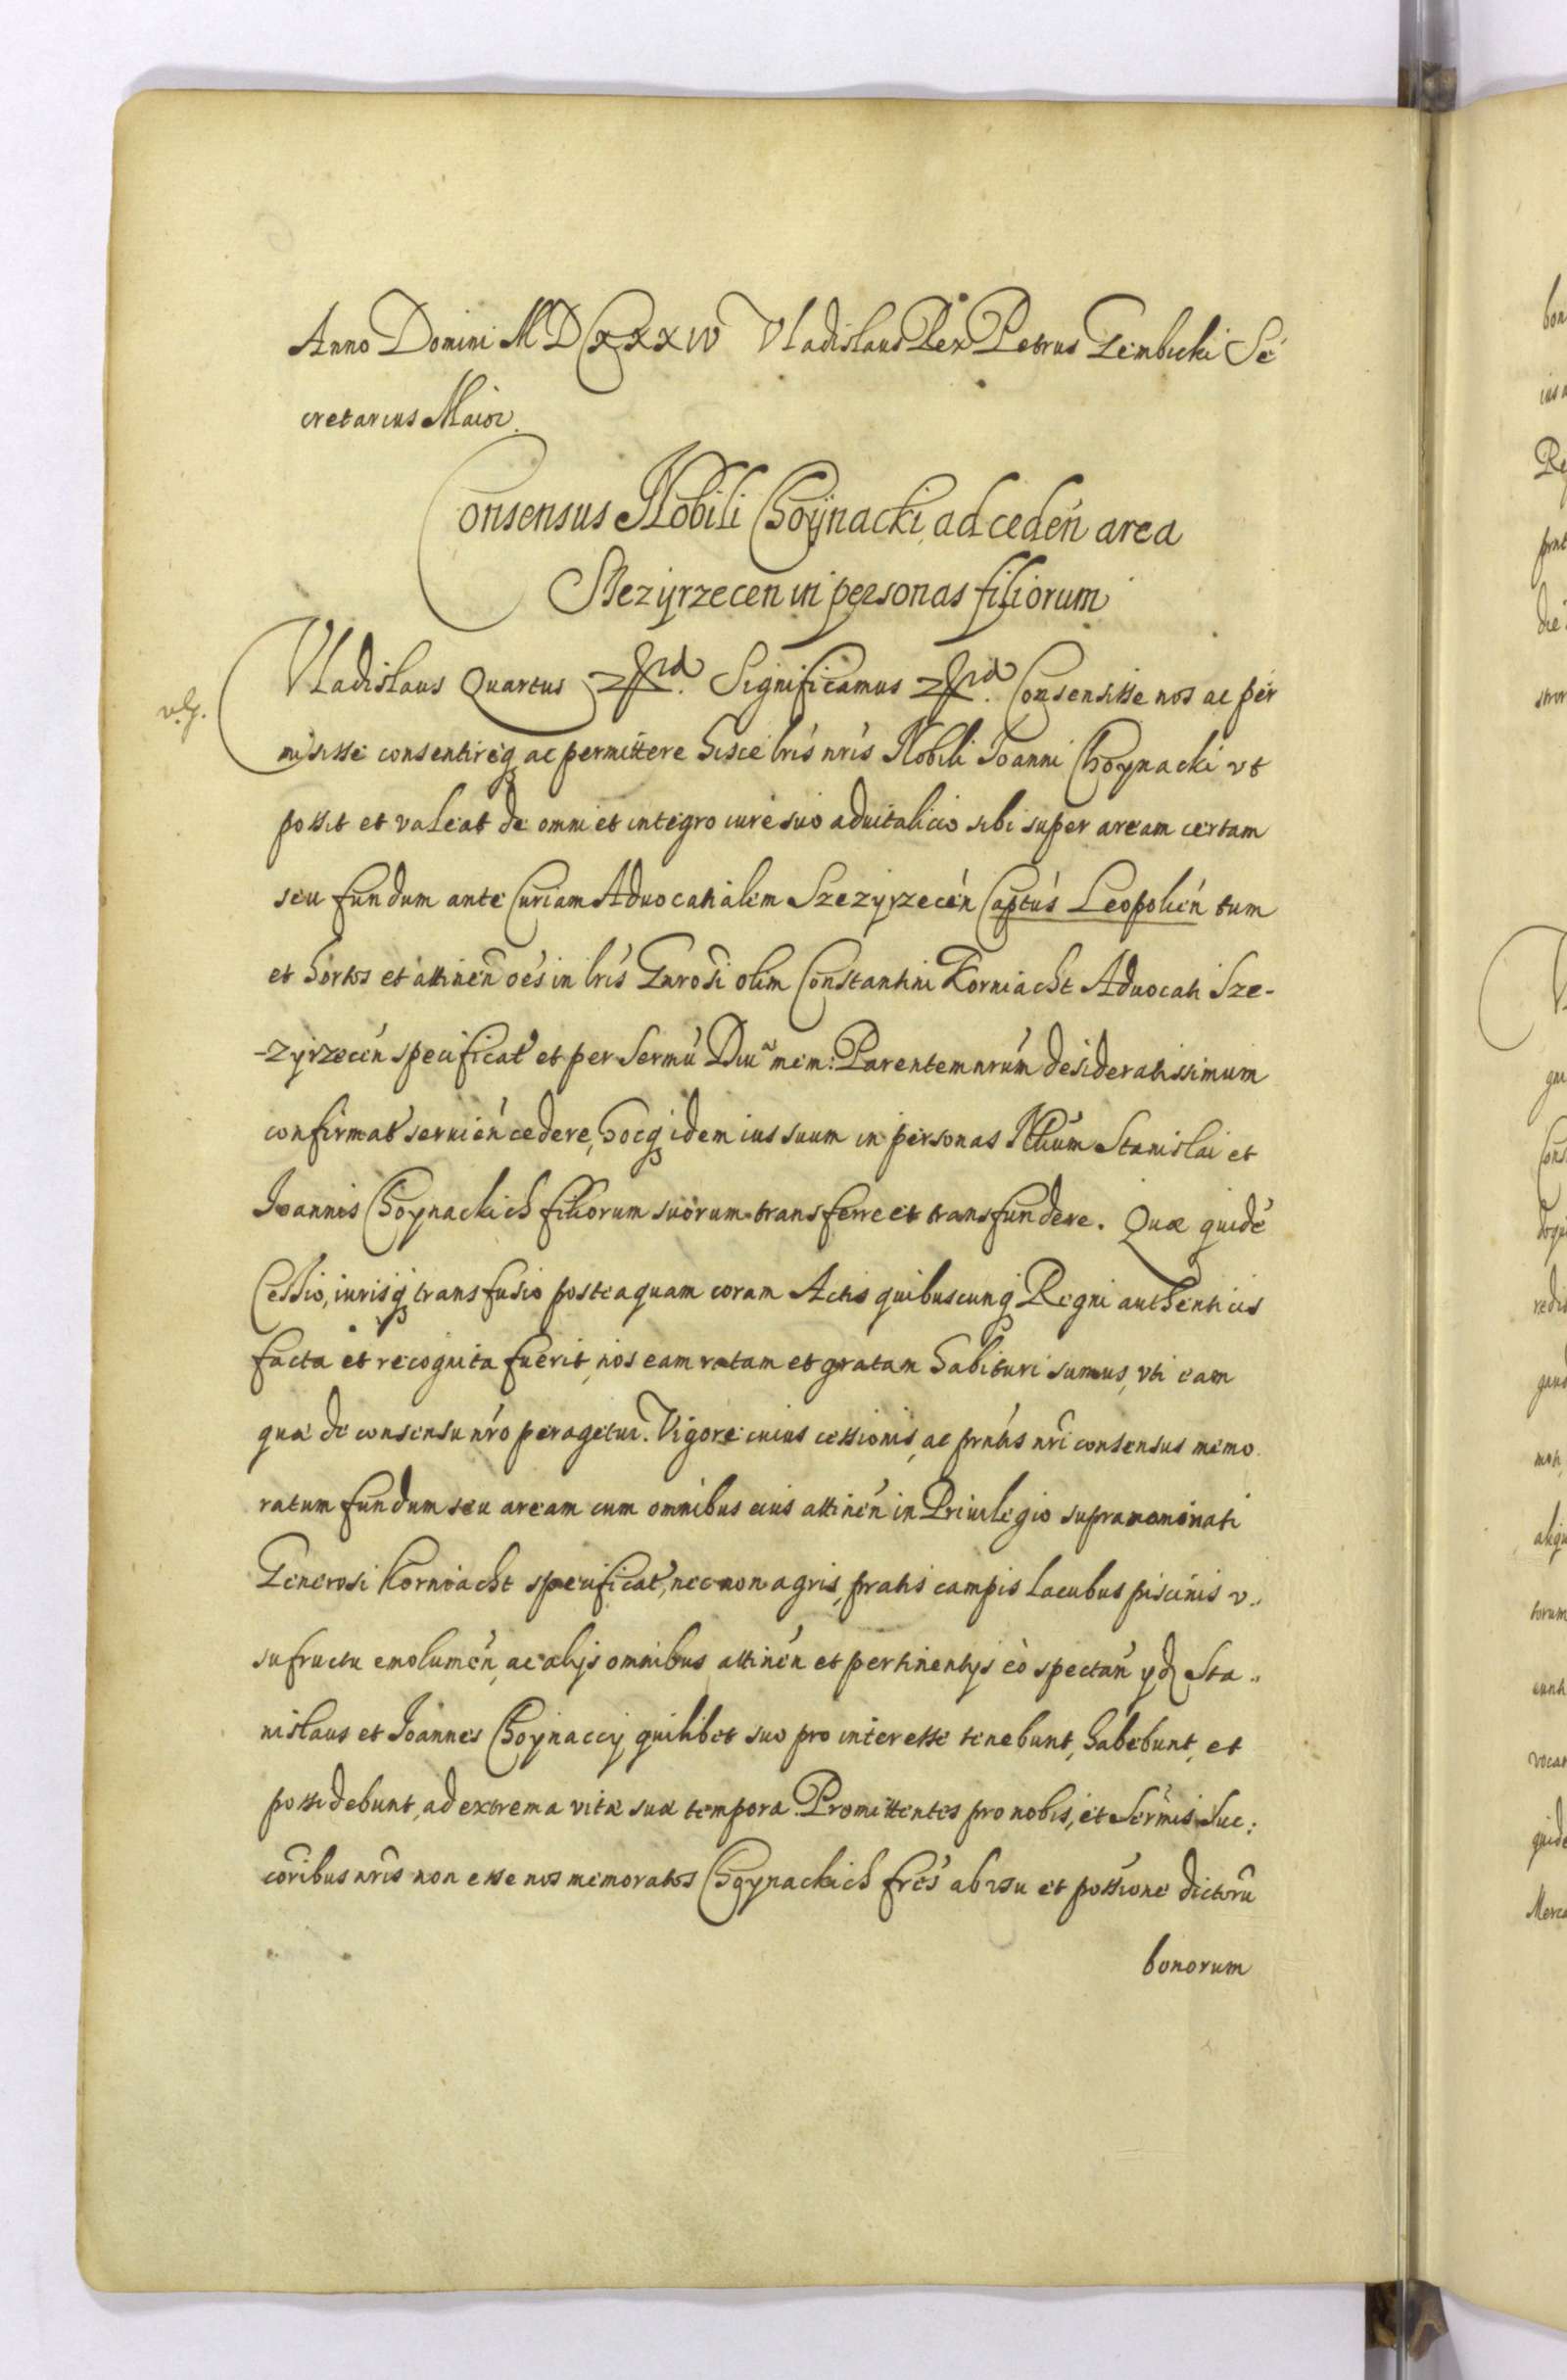 Anno Domini MDCXXXIV Vladislaus Rex Petrus Gembicki Se
cretarius Maior.
Consensus Nobili Choÿnacki ad cedeń area
Szezÿrzecen in personas filiorum
Vladislaus Quartus Significamus Consensisse nos ac per
misisse consentireq ac permittere hisce lris nris Nobili Ioanni Choynacki vt
possit et valeat de omni et integro iure suo aduitalicio sibi super aream certam
seu fundum ante Curiam Aduocatialem Szezyrzecén Captús Leopolién tum
et hortos et attinen oés in lris Gnrosi olim Constantini Korniacht Aduocati Sze-
-zyrzecén specificat et per Sermú Diu mem: Parentem nrúm desideratissimum
confirmat seruień cedere, hocq idem ius suum in personas Nbliúm Stanislai et
Ioannis Choynackich filiorum suorum transferre et transfundere. Quæ quidé
Cessio, iurisq transfusio posteaquam coram Actis quibuscunq Regni authenticis
facta et recognita fuerit, nos eam ratam et gratam habituri sumus, vti eam
quæ de consensu nró peragetur. Vigore cuius cessionis, ac prntis nri consensus memo
ratum fundum seu aream cum omnibus eius attinén in Priuilegio supranominati
Generosi Korniacht specificat, necnon agris, pratis campis lacubus piscinis v..
sufructu emolumén, ac alijs omnibus attinén et pertinentijs eò spectań yd Sta..
nislaus et Ioannes Choynaccy quilibet suo pro interesse tenebunt, habebunt, et
possidebunt, ad extrema vitæ suæ tempora. Promittentes pro nobis, et Sermis Suc:
coribus nris non esse nos memoratos Choynackich frés ab usu et possione dictorũ
bonorum